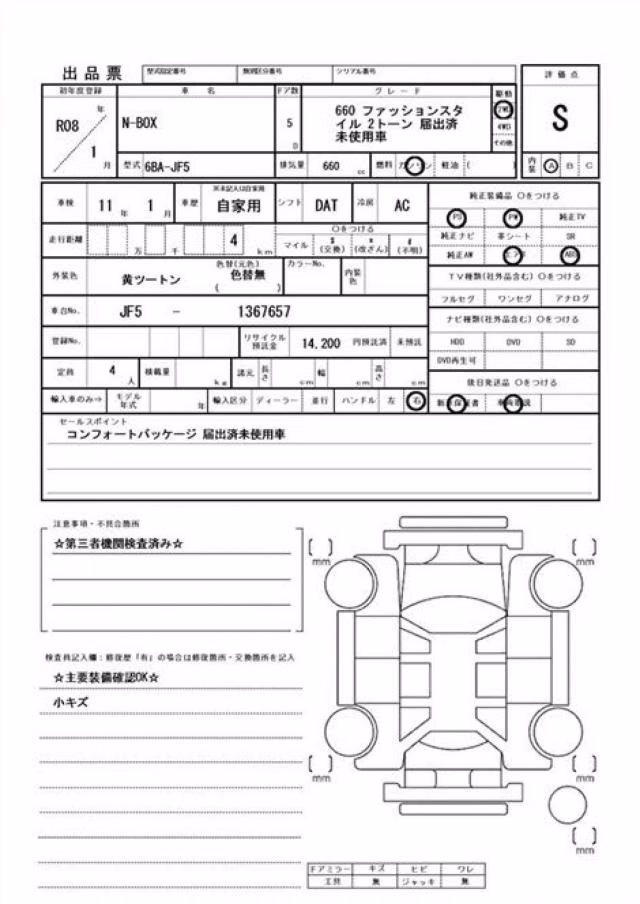 出品票 型式指定番号 類別区分番号 シリアル番号
初年度登録 車名 ドア数 グレード 駆動 評価点
R08 年 1 月 N-BOX 5 D 660 ファッションスタ
イル 2トーン 届出済
未使用車
2WD
4WD
その他
S
型式 6BA-JF5 排気量 660 cc 燃料 ガソリン 軽油 ( ) 内装 A B C
車検 11 年 1 月 車歴 ※未記入は自家用 自家用 シフト DAT 冷房 AC
純正装備品 ○をつける
PS PW 純正TV
走行距離 万 千 4 km ○をつける マイル $(交換) *(改ざん) #(不明)
純正ナビ 革シート SR
純正AW エアB ABS
外装色 黄ツートン 色替(元色) 色替無 ( ) カラーNo. 内装色
TV種類(社外品含む) ○をつける
フルセグ ワンセグ アナログ
車台No. JF5 - 1367657
ナビ種類(社外品含む) ○をつける
登録No. リサイクル預託金 14,200 円預託済 未預託
HDD DVD SD
DVD再生可
定員 4 人 積載量 kg 諸元 長さ cm 幅 cm 高さ cm
後日発送品 ○をつける
輸入車のみ⇒ モデル年式 年 輸入区分 ディーラー 並行 ハンドル 左 右
セールスポイント
コンフォートパッケージ 届出済未使用車
注意事項・不具合箇所
☆第三者機関検査済み☆
検査員記入欄:修復歴「有」の場合は修復箇所・交換箇所を記入
☆主要装備確認OK☆
小キズ
mm
mm
mm
mm
mm
ドアミラー キズ ヒビ ワレ
工具 無 ジャッキ 無